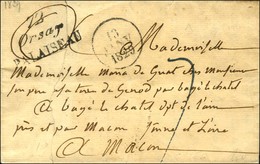 1829
Orsay
PALAISEAU
13
1829
Mademoiselle
Mademoiselle maria de Guest chez monsieur
son pere notaire de Genod par bagé le chatel
a bagé le chatel dpt de l'ain
près et par Macon Saone et Loire
a Macon
7